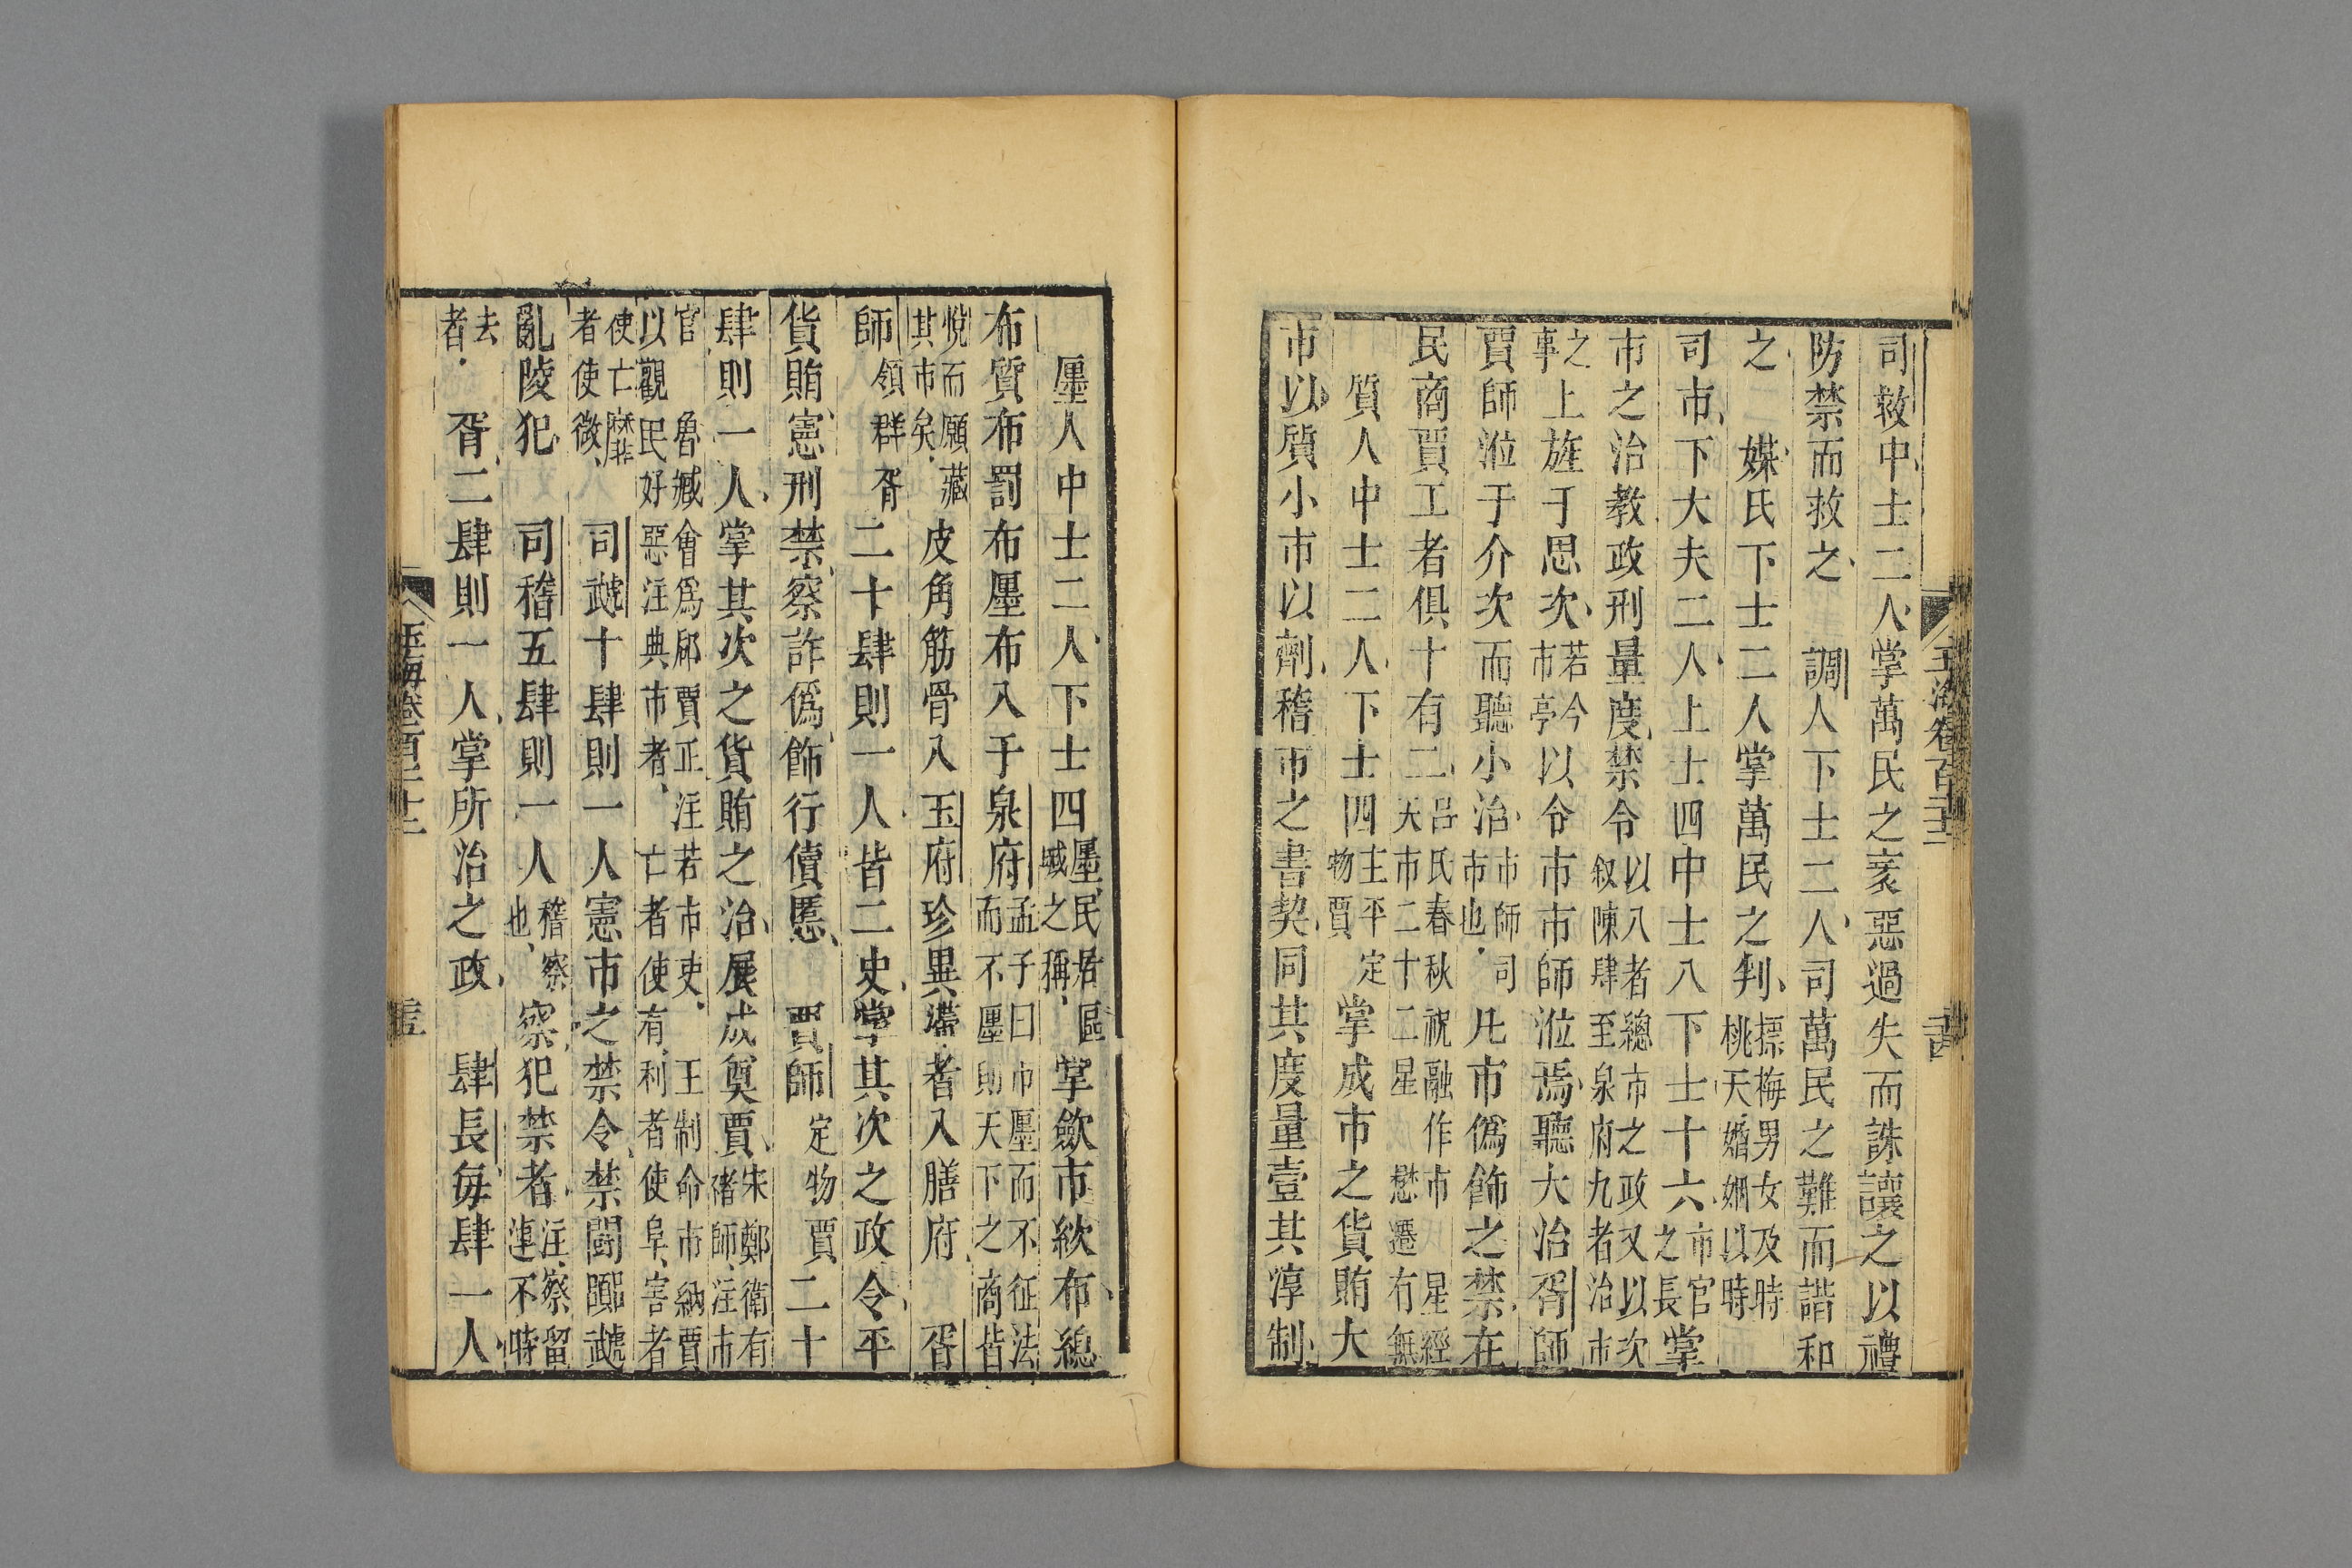 司救中士二人掌萬民之衺惡過失而誅讓之以禮
防禁而救之 調人下士二人司萬民之難而諧和
之 媒氏下士二人掌萬民之判摽梅男女及時桃夭婚姻以時
司市下大夫二人上士四中士八下士十六市官之長掌
市之治教政刑量度禁令以八者總市之政又以次叙陳肆至泉府九者治市
之事上旌于思次若今市亭以令市市師涖焉聽大治胥師
賈師涖于介次而聽小治市師司市也凡市僞飾之禁在
民商賈工者俱十有二呂氏春秋祝融作市天市二十二星 星經懋遷有無
質人中士二人下士四主平定物賈掌成市之貨賄大
市以質小市以劑稽市之書契同其度量壹其淳制
玉海卷百二十二
廛人中士二人下士四廛民居區域之稱掌歛市絘布總
布質布罰布廛布入于泉府孟子曰市廛而不征法而不廛則天下之商皆
悅而願藏其市矣皮角筋骨入玉府珍異滯者入膳府 胥
師領群胥二十肆則一人皆二史掌其次之政令平
貨賄憲刑禁察詐僞飾行儥慝 賈師定物賈二十
肆則一人掌其次之貨賄之治展成奠賈朱鄭衛有褚師注市
官 魯臧會爲郈賈正注若市吏 王制命市納賈以觀民好惡注典市者 亡者使有利者使阜害者
使亡靡者使微 司虣十肆則一人憲市之禁令禁鬭囂虣
亂陵犯 司稽五肆則一人稽察也察犯禁者注察留連不時
去者 胥二肆則一人掌所治之政 肆長每肆一人
玉海卷百二十二